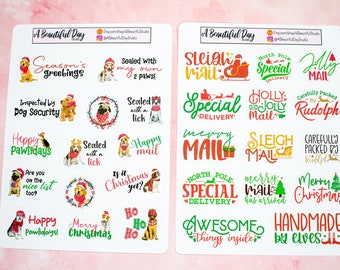 A Beautiful Day
Season's
greetings
Sealed with
my own
2 paws!
Inspected by
Dog Security
Sealed
with a
lick
Happy
Pawlidays
Sealed
with a
lick
Happy
mail
Are you
on the
nice list
too?
Is it
Christmas
yet?
Happy
Pawlidays!
Merry
Christmas
HO
HO
HO
A Beautiful Day
SLEIGH
mail
North Pole
Special
DELIVERY
JOLLY
MAIL
Special
DELIVERY
HOLLY
JOLLY
MAIL
Carefully
Packed by
Rudolph
merry
MAIL
SLEIGH
MAIL
CAREFULLY
PACKED BY
NORTH POLE
SPECIAL
DELIVERY
merry
mail
has arrived
Merry
Christmas
AWESOME
things inside
HANDMADE
by elves